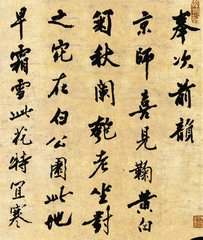 奉次前韻
京師喜見鞠黃白
菊秋闌老坐對
之在公園此地
早霜雪此花特冝寒